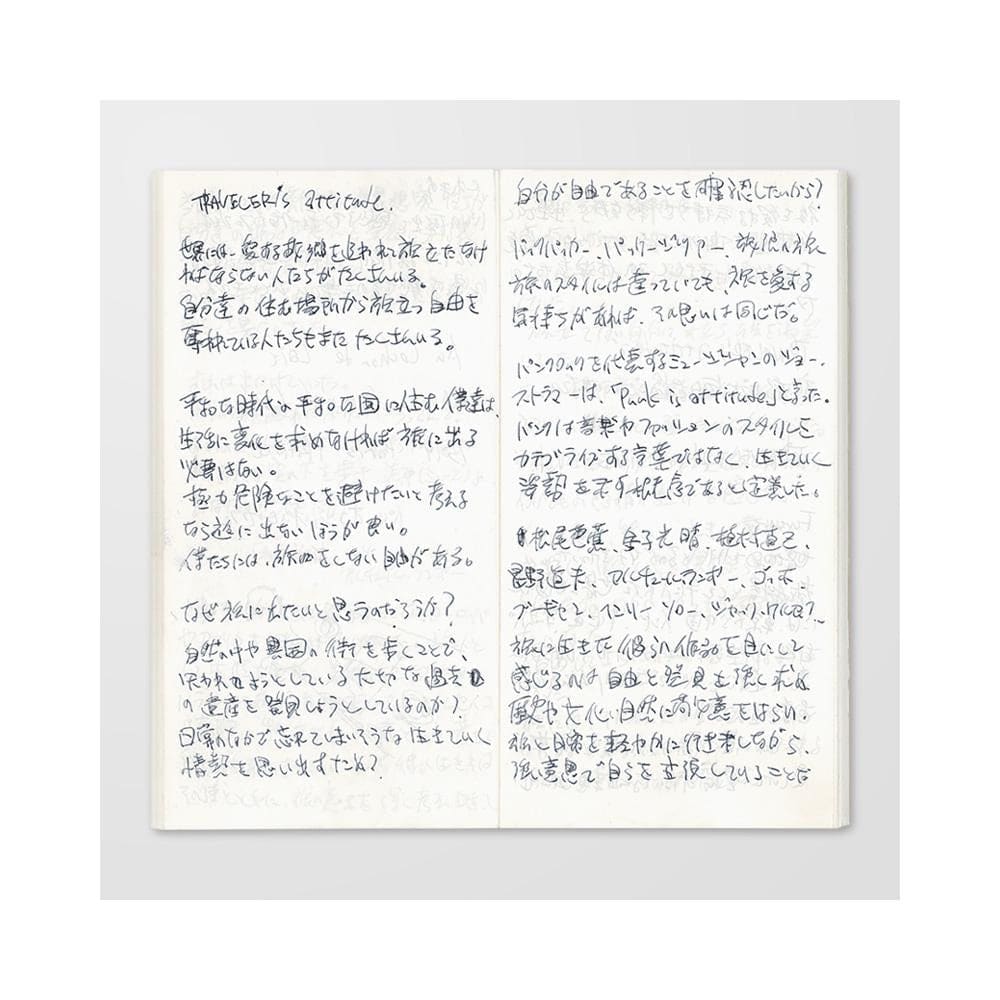 TRAVELER's attitude.
世界には、愛する故郷を追われて旅立たなけ
ればならない人たちがたくさんいる。
自分達の住む場所から旅立つ自由を
奪われている人たちもまたたくさんいる。
平和な時代の平和な国に住む僕達は、
生活に変化を求めなければ旅に出る
必要はない。
極力危険なことを避けたいと考える
なら旅に出ないほうが良い。
僕たちには、旅をしない自由がある。
なぜ旅に出たいと思うのだろうか?
自然の中や異国の街を歩くことで、
失われようとしている大切な過去
の遺産を発見しようとしているのか?
日常のなかで忘れてしまいそうな生きていく
情熱を思い出すため?
自分が自由であることを確認したいから?
バックパッカー、パッケージツアー、放浪の旅
旅のスタイルは違っていても、旅を愛する
気持ちがあれば、その思いは同じだ。
パンクロックを代表するミュージシャンのジョー・
ストラマーは、「Punk is attitude」と言った。
パンクは音楽やファッションのスタイルを
カテゴライズする言葉ではなく、生きていく
姿勢を示す概念であると定義した。
松尾芭蕉、金子光晴、植村直己、
星野道夫、アルチュール・ランボー、ゴッホ、
ブーゼン、ヘンリー・ソロー、ジャック・ケルアック…
旅に生きた彼らの作品を目にして
感じるのは自由と発見を強く求め
歴史や文化、自然に敬意をはらい、
旅と日常を軽やかに行き来しながら、
強い意思で自らを主張していることだ